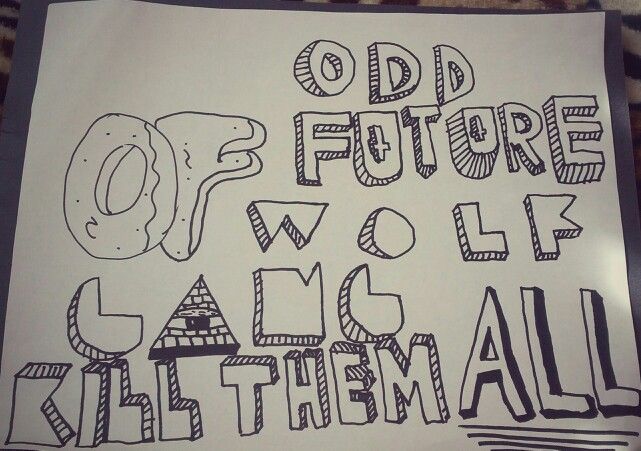 OF
ODD
FUTURE
WOLF
GANG
KILL THEM ALL